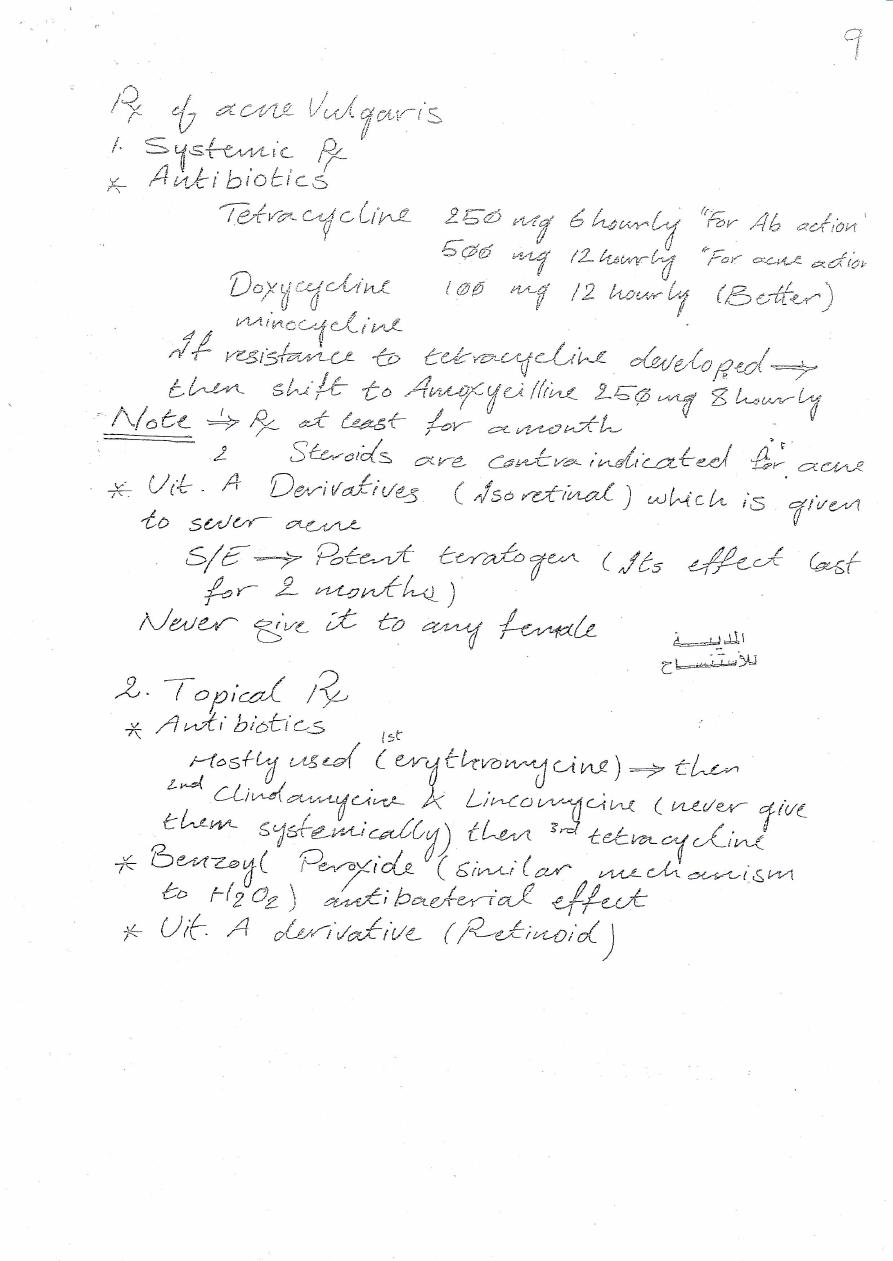 9
Rx of acne Vulgaris
1. Systemic Rx
* Antibiotics
Tetracycline 250 mg 6 hourly "For Ab action"
500 mg 12 hourly "For acne action
Doxycycline 100 mg 12 hourly (Better)
minocycline
If resistance to tetracycline developed →
then shift to Amoxycilline 250 mg 8 hourly
Note 1→ Rx at least for a month
2 Steroids are contraindicated for acne
* Vit. A Derivatives (Isoretinal) which is given
to sever acne
S/E → Potent teratogen (Its effect last
for 2 months)
Never give it to any female
المدينة
للاستنساخ
2. Topical Rx
* Antibiotics
Mostly used 1st (erythromycine) → then
2nd Clindamycine & Lincomycine (never give
them systemically) then 3rd tetracycline
* Benzoyl Peroxide (similar mechanism
to H2O2) antibacterial effect
* Vit. A derivative (Retinoid)